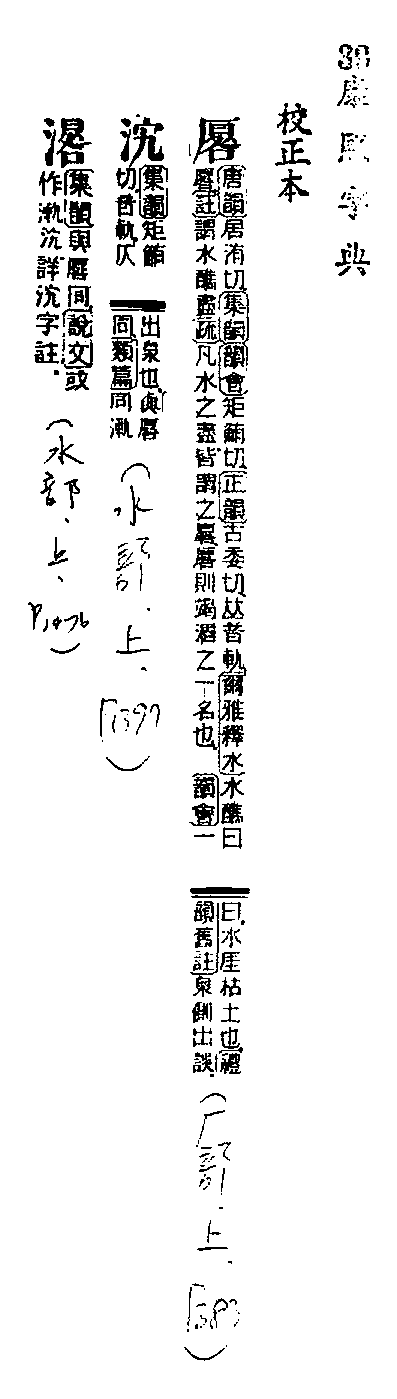 38 康熙字典
校正本
厬
唐韻居洧切集韻韻會矩鮪切正韻古委切𠀤音軌爾雅釋水水醮曰
厬註謂水醮盡疏凡水之盡皆謂之厬厬則竭涸之一名也 韻會一
曰水厓枯土也禮
韻舊註泉側出誤
(厂部.上.
集韻矩鮪
切音軌仄
出泉也與厬
同類篇同
(水部.上.
集韻與厬同說文或
作 詳 字註。
(水部.上.
P.1476)